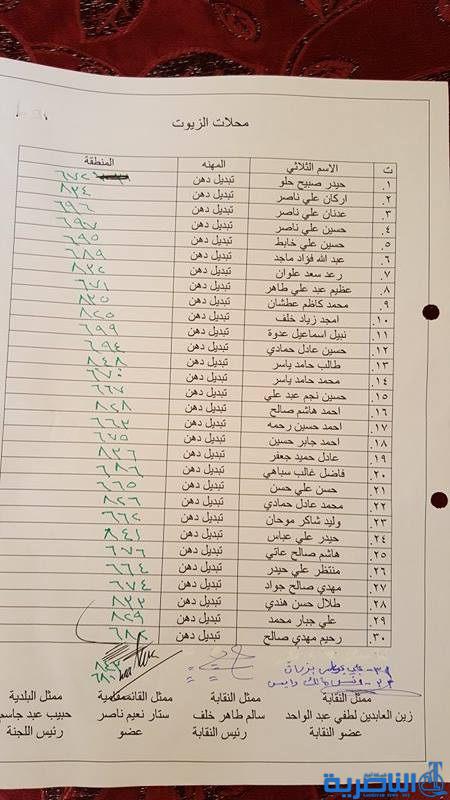 محلات الزيوت
ت الاسم الثلاثي المهنه المنطقة
١. حيدر صبيح حلو تبديل دهن ٦٧٢
٢. اركان علي ناصر تبديل دهن ٨٣٤
٣. عدنان علي ناصر تبديل دهن ٦٩٦
٤. حسين علي ناصر تبديل دهن ٦٩٧
٥. حسين علي خابط تبديل دهن ٦٩٥
٦. عبد الله فؤاد ماجد تبديل دهن ٦٨٩
٧. رعد سعد علوان تبديل دهن ٨٣٢
٨. عظيم عبد علي طاهر تبديل دهن ٦٧١
٩. محمد كاظم عطشان تبديل دهن ٨٣٥
١٠. امجد زياد خلف تبديل دهن ٨٢٥
١١. نبيل اسماعيل عدوة تبديل دهن ٦٩٩
١٢. حسين عادل حمادي تبديل دهن ٦٩٤
١٣. طالب حامد ياسر تبديل دهن ٨٤٨
١٤. محمد حامد ياسر تبديل دهن ٦٧٠
١٥. حسين نجم عبد علي تبديل دهن ٦٦٧
١٦. احمد هاشم صالح تبديل دهن ٨٢٨
١٧. احمد حسين رحمه تبديل دهن ٦٦٣
١٨. احمد جابر حسين تبديل دهن ٦٧٥
١٩. عادل حميد جعفر تبديل دهن ٨٣٦
٢٠. فاضل غالب سباهي تبديل دهن ٦٨٦
٢١. حسن علي حسن تبديل دهن ٦٦٥
٢٢. محمد عادل حمادي تبديل دهن ٨٢٦
٢٣. وليد شاكر موحان تبديل دهن ٦٦٢
٢٤. حيدر علي عباس تبديل دهن ٨٤١
٢٥. هاشم صالح عاتي تبديل دهن ٦٧٦
٢٦. منتظر علي حيدر تبديل دهن ٦٦٤
٢٧. مهدي صالح جواد تبديل دهن ٦٧٤
٢٨. طلال حسن هندي تبديل دهن ٨٣٣
٢٩. علي جبار محمد تبديل دهن ٨٢٩
٣٠. رحيم مهدي صالح تبديل دهن ٦٨٨
ممثل النقابة ممثل النقابة ممثل القائممقامية ممثل البلدية
زين العابدين لطفي عبد الواحد سالم طاهر خلف ستار نعيم ناصر حبيب عبد جاسم
عضو النقابة رئيس النقابة عضو رئيس اللجنة
الناصرية